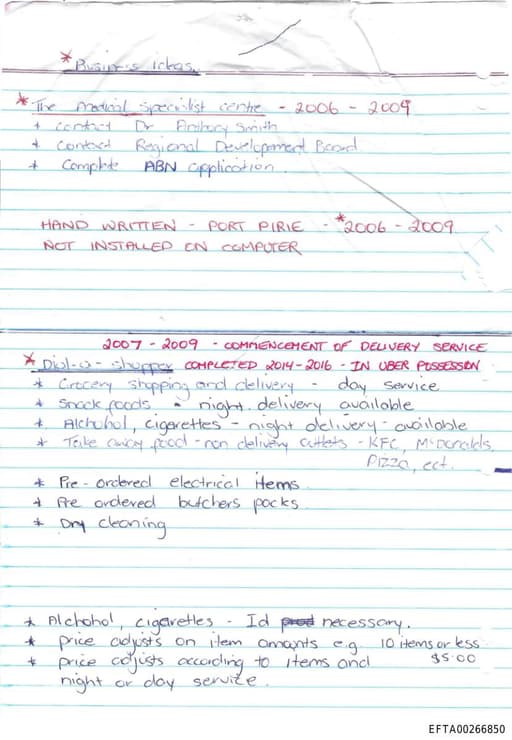 * Business Ideas
* The medical specialist centre - 2006 - 2009
* contact Dr Anthony Smith
* contact Regional Development Board
* Complete ABN application.
HAND WRITTEN - PORT PIRIE - *2006 - 2009
NOT INSTALLED ON COMPUTER
2007 - 2009 - COMMENCEMENT OF DELIVERY SERVICE
* Dial-a-shopper COMPLETED 2014-2016 - IN UBER POSSESSION
* Grocery shopping and delivery - day service
* Snack foods - night delivery available
* Alchohol, cigarettes - night delivery - available
* Take away food - non delivery outlets - KFC, McDonalds,
Pizza, ect.
* Pre-ordered electrical items
* Pre ordered butchers packs
* Dry cleaning
* Alchohol, cigarettes - Id necessary.
* price adjusts on item amounts e.g. 10 items or less
$5.00
* price adjusts according to items and
night or day service.
EFTA00266850